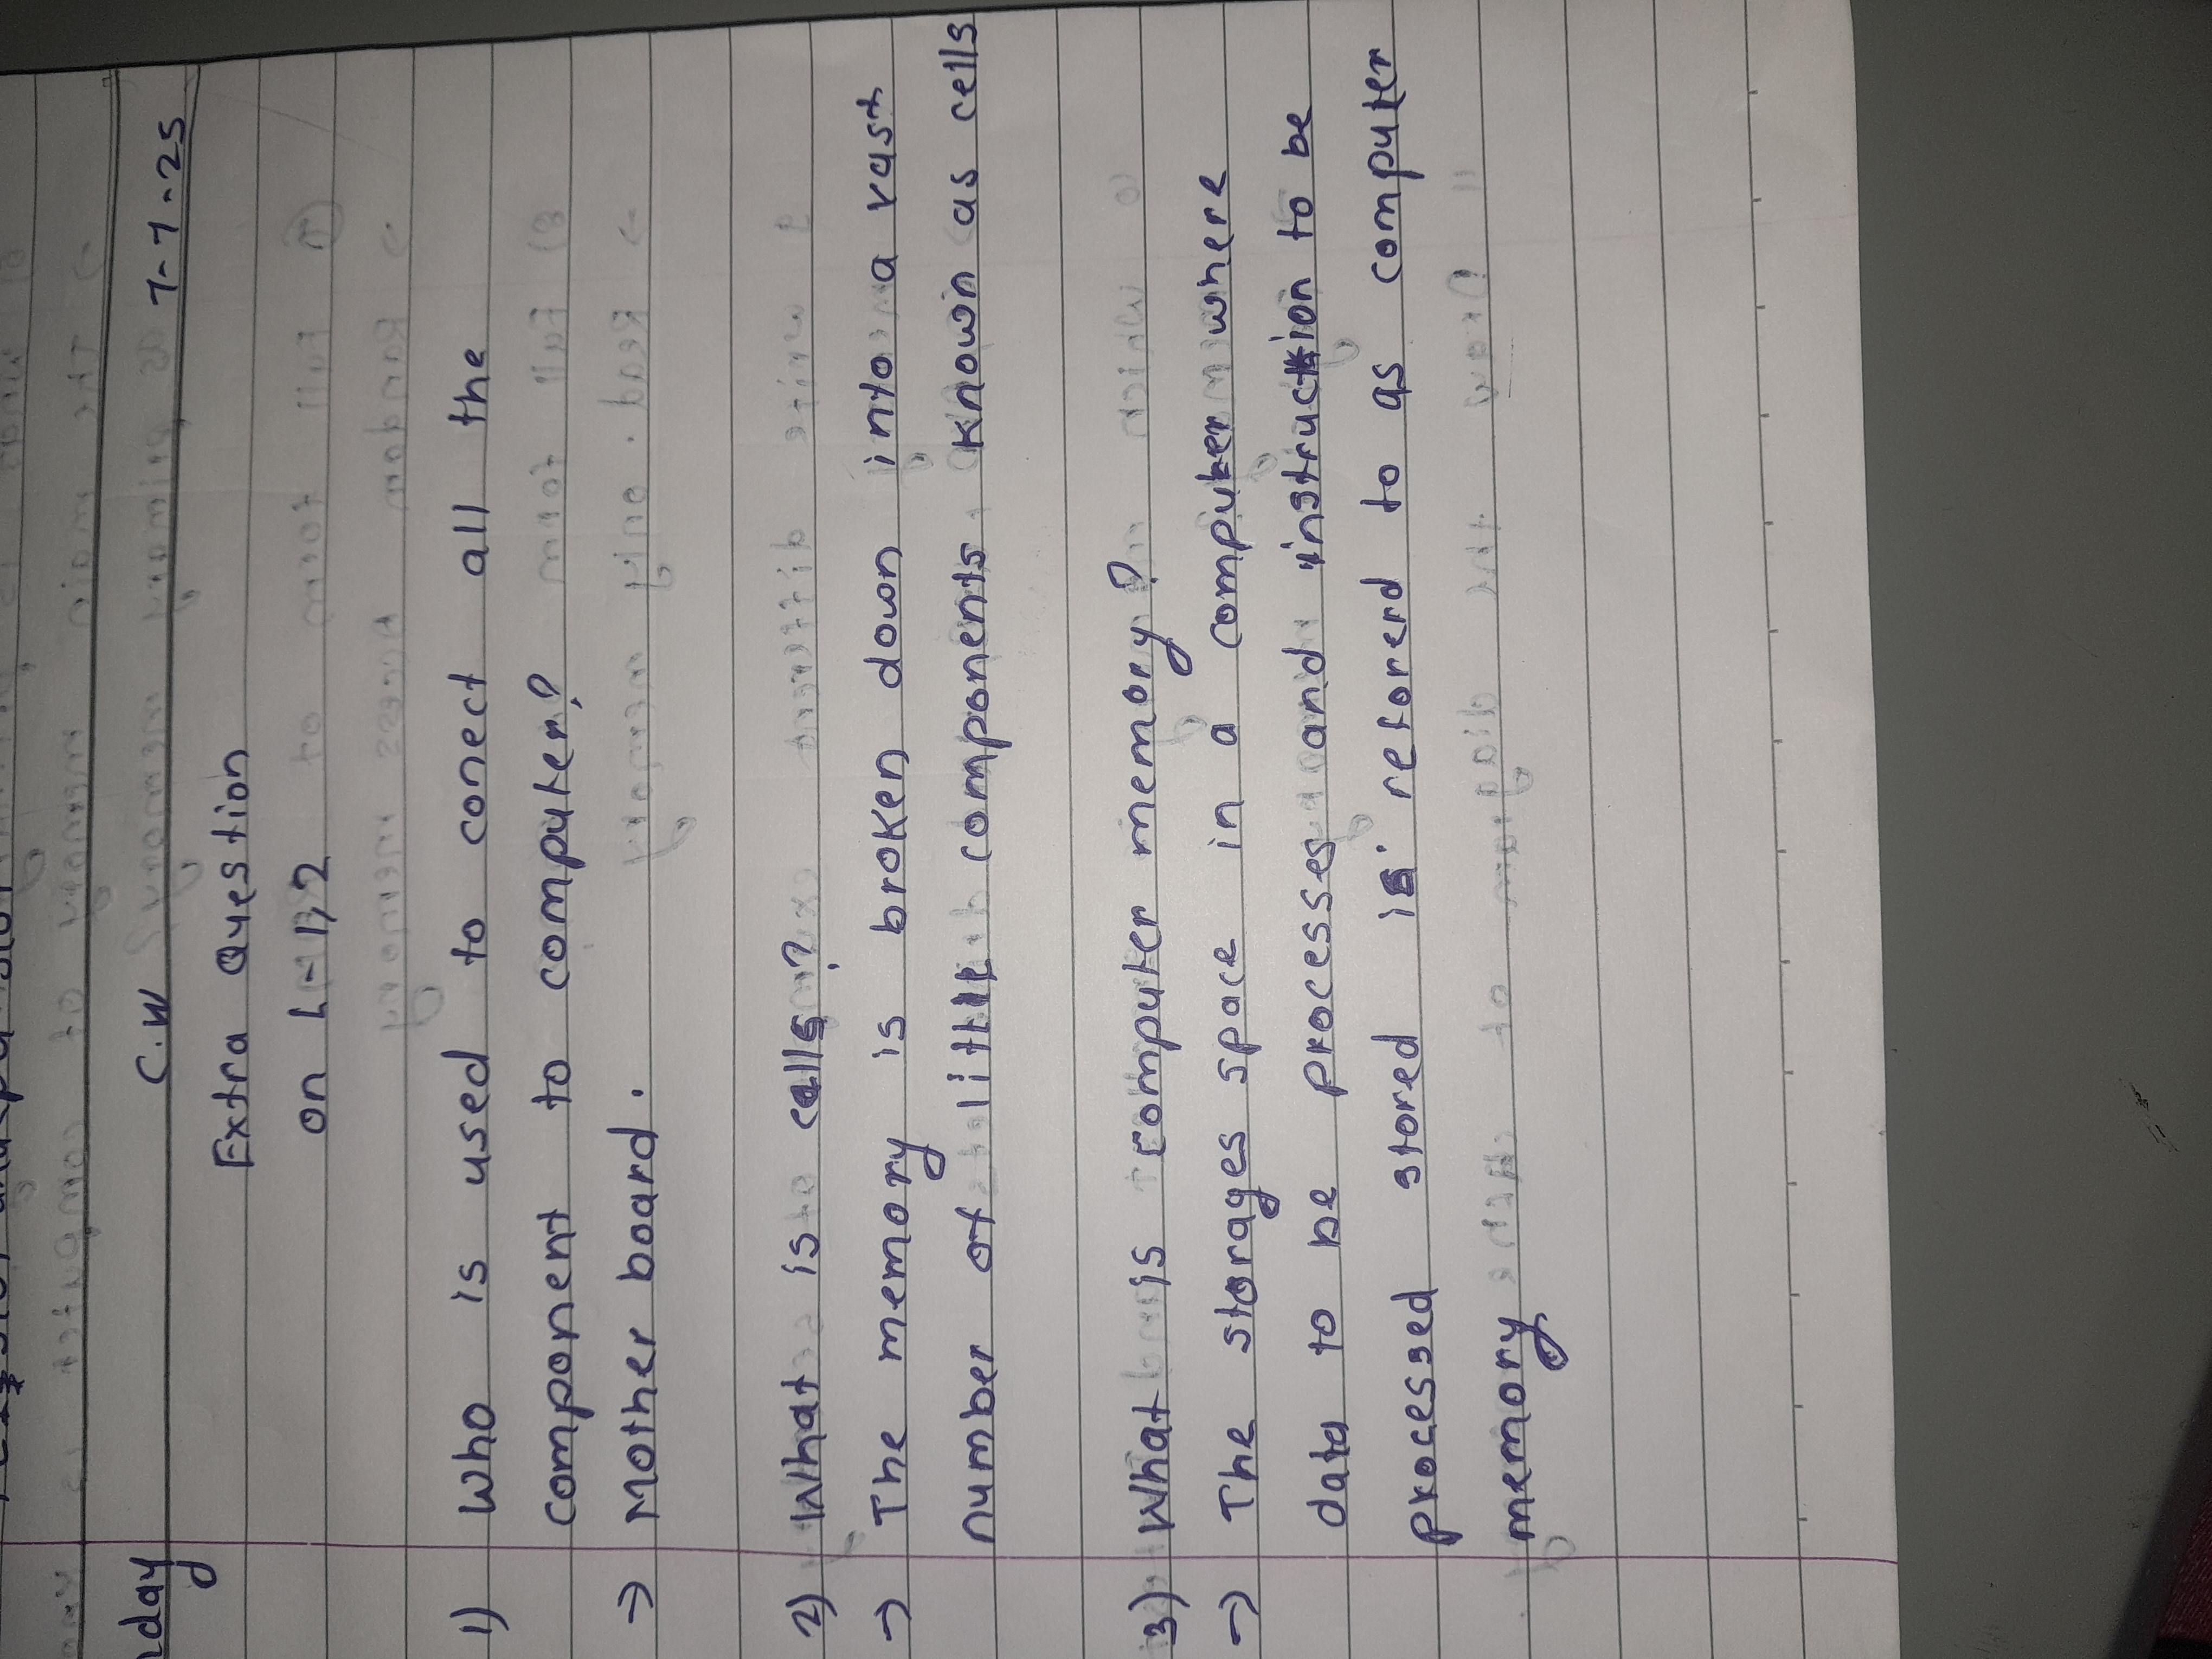 C.W 7-7-25
Extra Question
on L-1,2
1) Who is used to conect all the
component to computer?
→ Mother board.
2) What is cells?
→ The memory is broken down into a vast
number of little components known as cells
3) What is computer memory?
→ The storages space in a computer where
data to be processes and instruction to be
processed stored is refored to as computer
memory